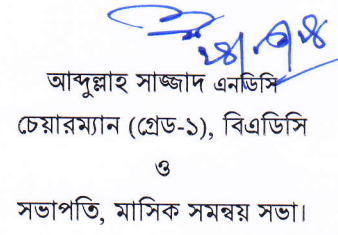 আব্দুল্লাহ সাজ্জাদ এনডিসি
চেয়ারম্যান (গ্রেড-১), বিএডিসি
ও
সভাপতি, মাসিক সমন্বয় সভা।